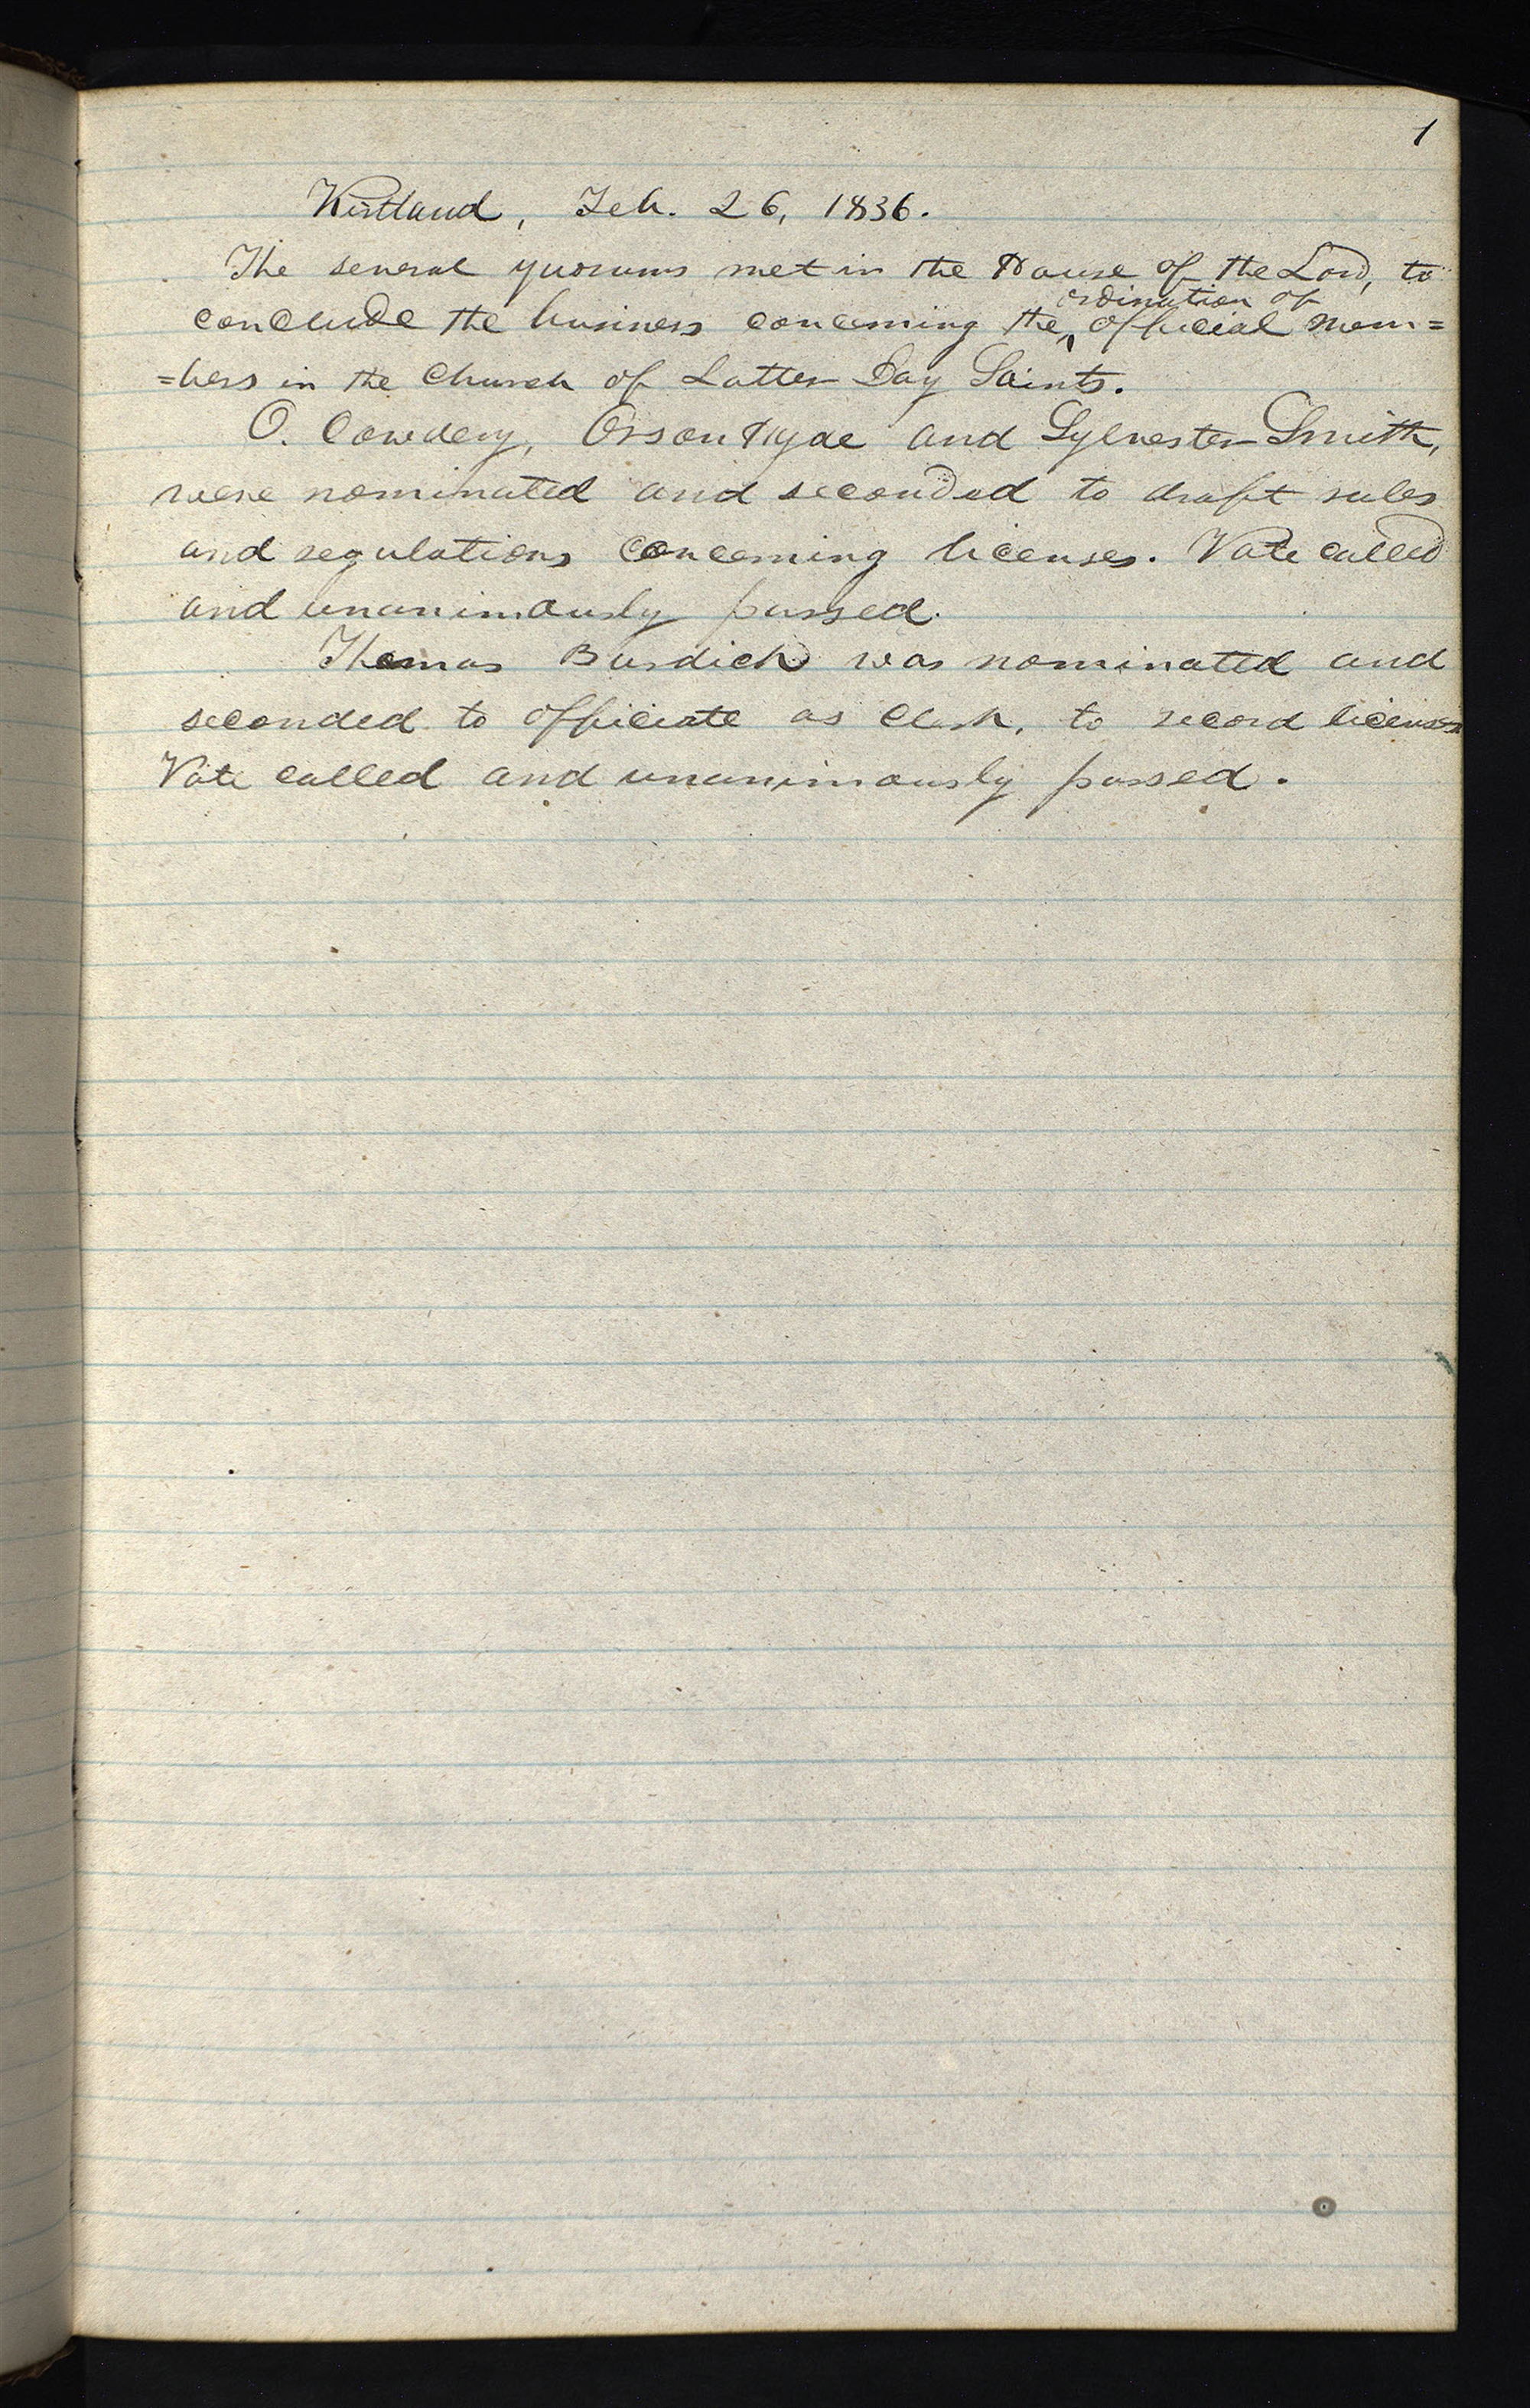 1
Kirtland, Feb. 26, 1836.
The several quorums met in the House of the Lord, to
ordination of
conclude the business concerning the ‸ official mem=
=bers in the Church of Latter Day Saints.
O. Cowdery, Orson Hyde and Sylvester Smith,
were nominated and seconded to draft rules
and regulations concerning licenses. Vote called
and unanimously passed.
Thomas Burdick was nominated and
seconded to officiate as Clerk, to record licenses
Vote called and unanimously passed.